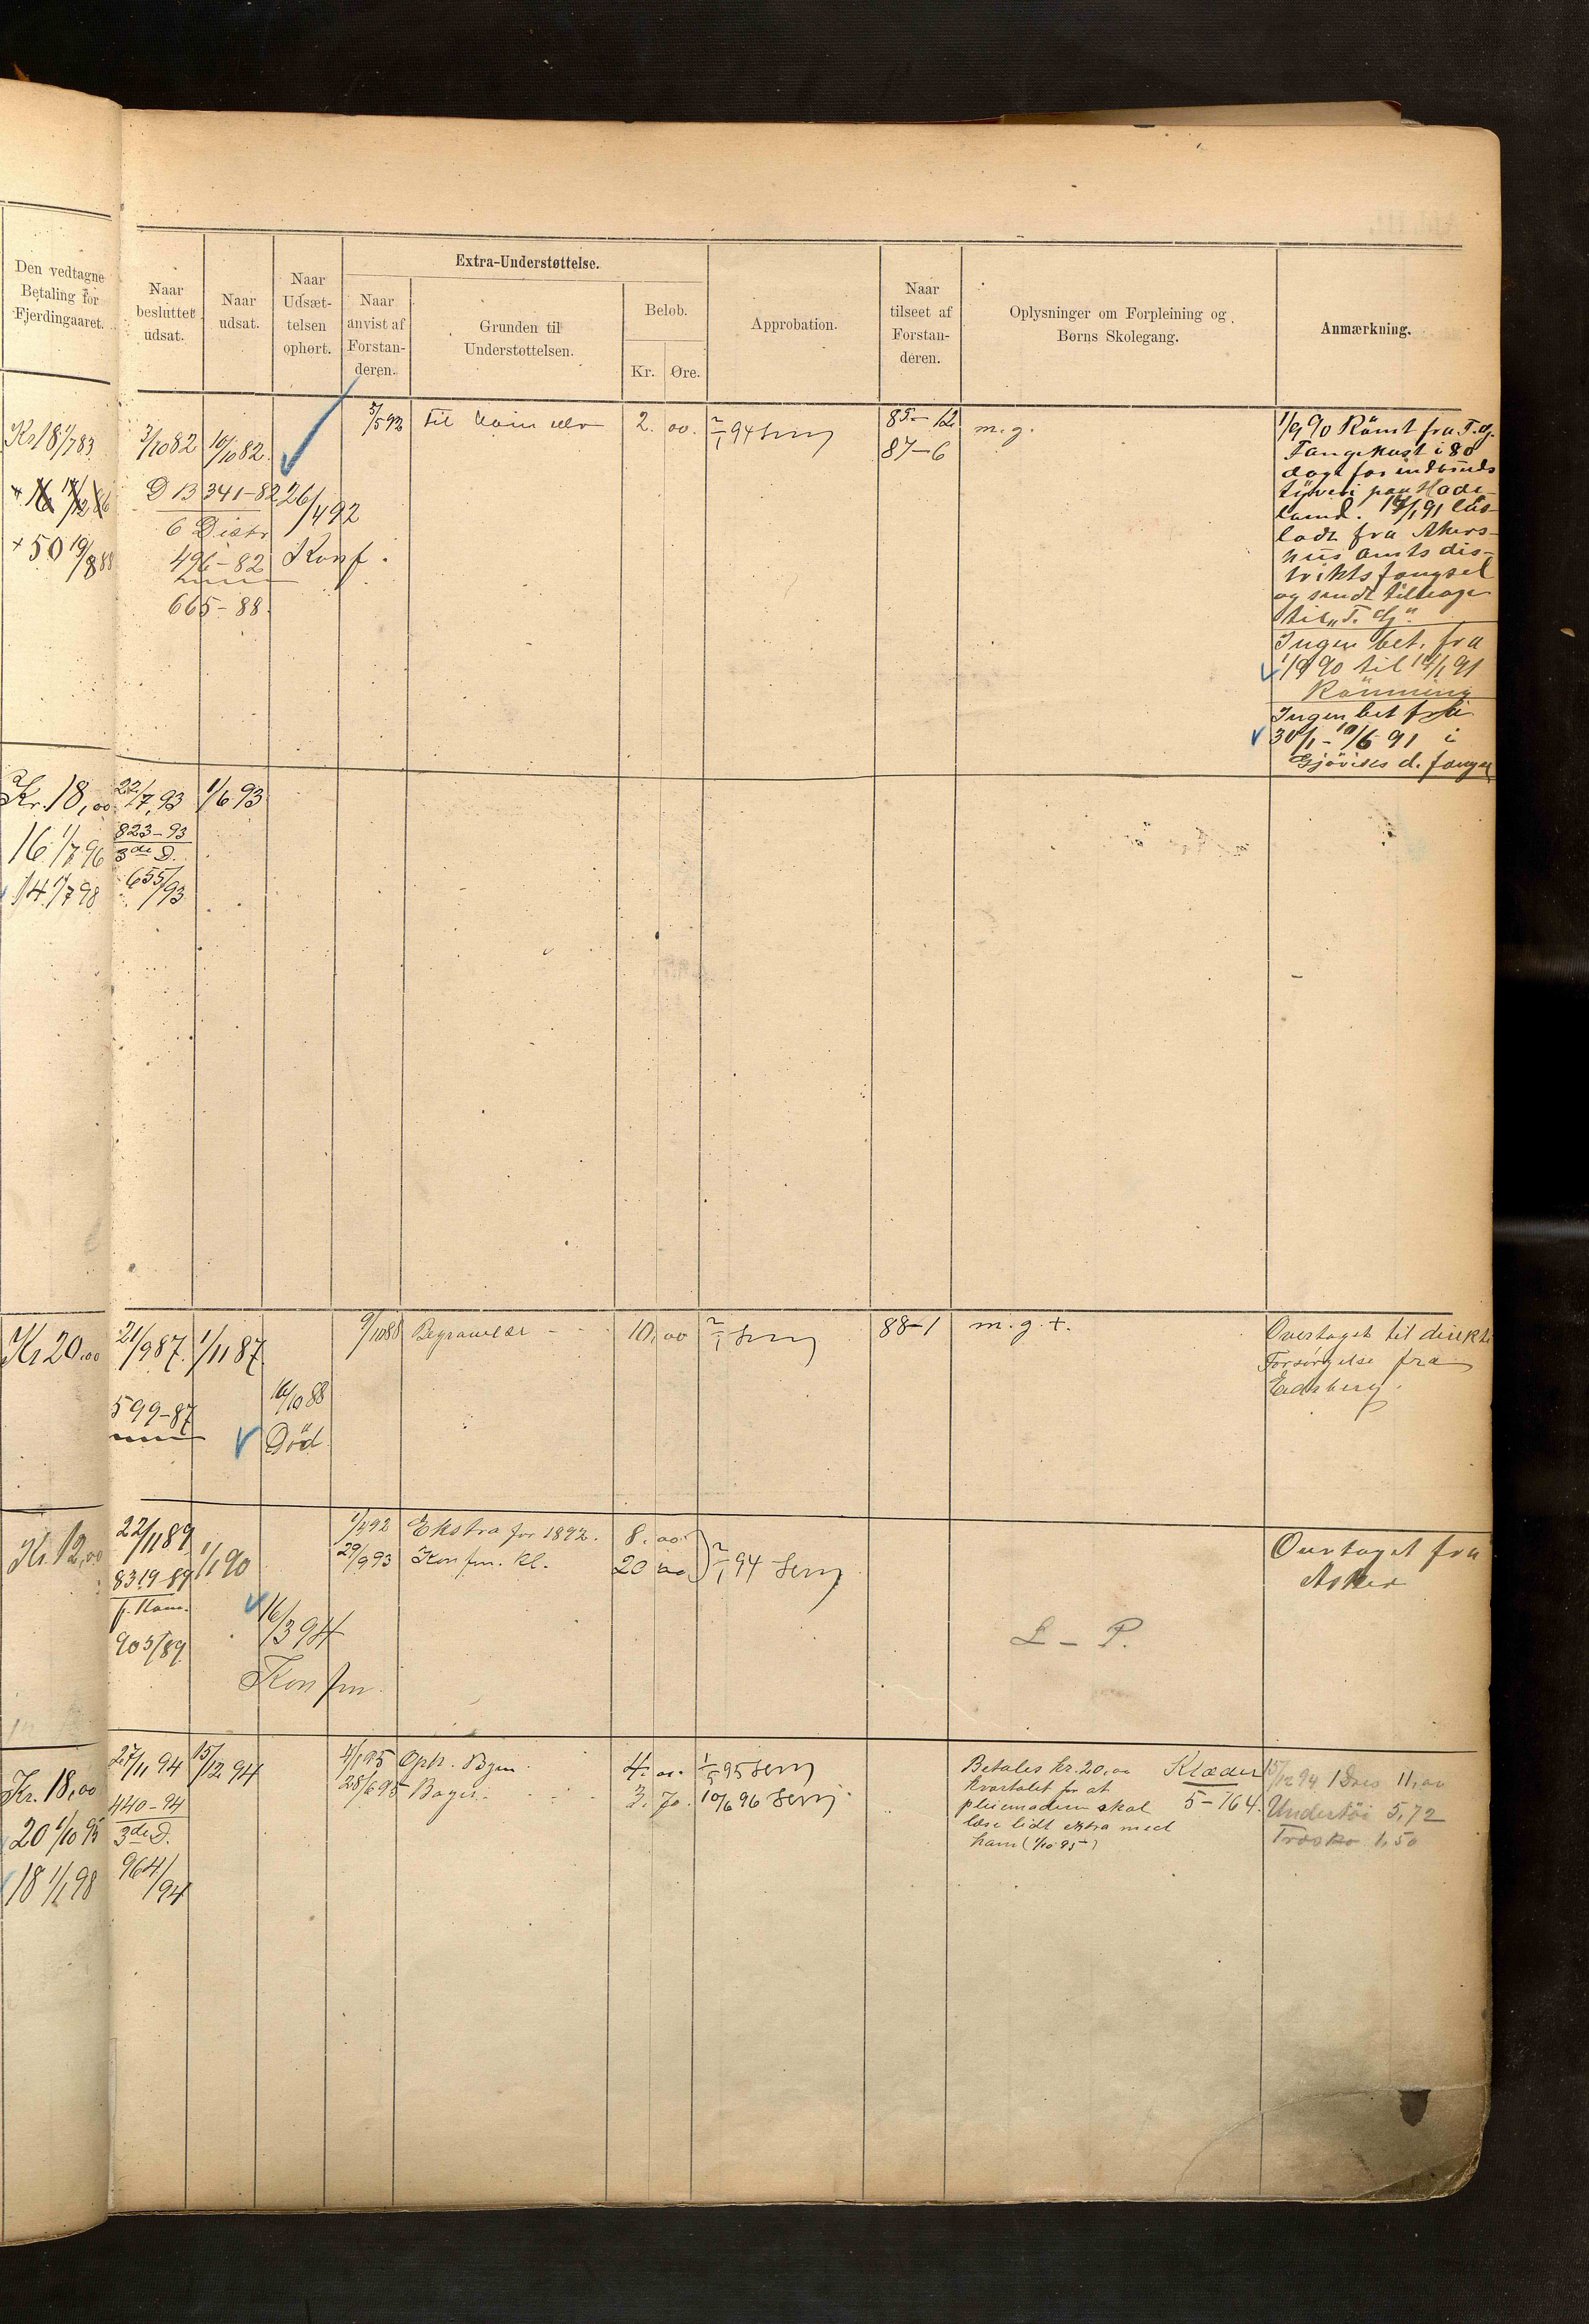 Den vedtagne
Betaling for
Fjerdingaaret.
Naar
besluttet
udsat.
Naar
udsat.
Naar
Udsæt-
telsen
ophørt.
Extra-Understøttelse.
Naar
anvist af
Forstan-
deren.
Grunden til
Understøttelsen.
Beløb.
Kr. Øre.
Approbation.
Naar
tilseet af
Forstan-
deren.
Oplysninger om Forpleining og
Børns Skolegang.
Anmærkning.
Kr 18 1/7 83
+ 50 19/8 88
3/10 82
D B 341-82
6 Distr
496-82
665-88
16/10 82
26/4 92
Konf.
3/5 92 til
2. 00.
2/1 94
85-12
87-6
m.g.
1/9 90 Römt fra T.g.
Fangekost i 80
dage for indbruds
tyveri paa Hade-
land. 14/1 91 løs-
ladt fra Akers-
hus amts dis-
trikts fængsel
og sendt tilbage
til "T. g."
Ingen bet. fra
1/9 90 til 14/1 91
Rømning
Ingen bet fra
30/1 - 10/6 91 i
Gjøviks d. fængsel
Kr. 18,00
16 1/7 96
14 1/7 98
22/7 93
823-93
3de D.
655/93
1/6 93
Kr 20.00
21/9 87
599-87
1/11 87
16/10 88
Död
9/10 88 Begravelse - -
10,00
2/1
88-1
m.g.+.
Overtaget til direkte
Forsørgelse fra
Eidsberg.
Kr. 12,00
22/11 89
8319-89
f. Kom.
903/89
1/1 90
16/3 94
Konfm.
1/4 92 Ekstra for 1892. 8.00
29/9 93 Konfm. kl. 20 00
2/1 94
L - P.
Overtaget fra
Asker
Kr. 18,00
20 1/10 95
18 1/1 98
27/11 94
440-94
3de D.
964/94
15/12 94
4/1 95 Oph. Bgen. 4. 00.
28/6 95 Bøger. 3. 70.
1/5 95
10/6 96
Betales kr. 20,00
kvartalet for at
pleiemoderen skal
læse lidt ekstra med
ham (1/10 95)
Klæder
5-164.
15/12 94 1 Dres 11,00
Undertöi 5,72
Træsko 1,50